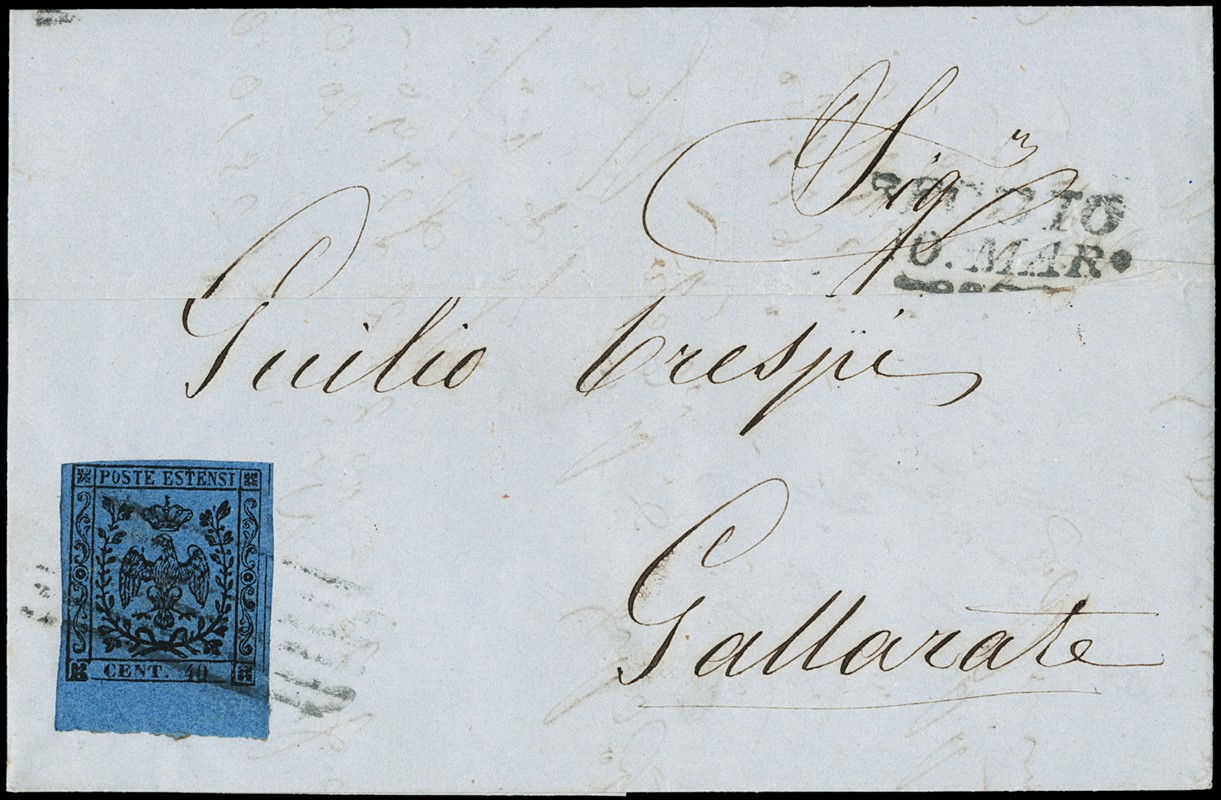 Sig.r
REGGIO
10. MAR.
Guilio Crespi
Gallarate
POSTE ESTENSI
CENT. 40